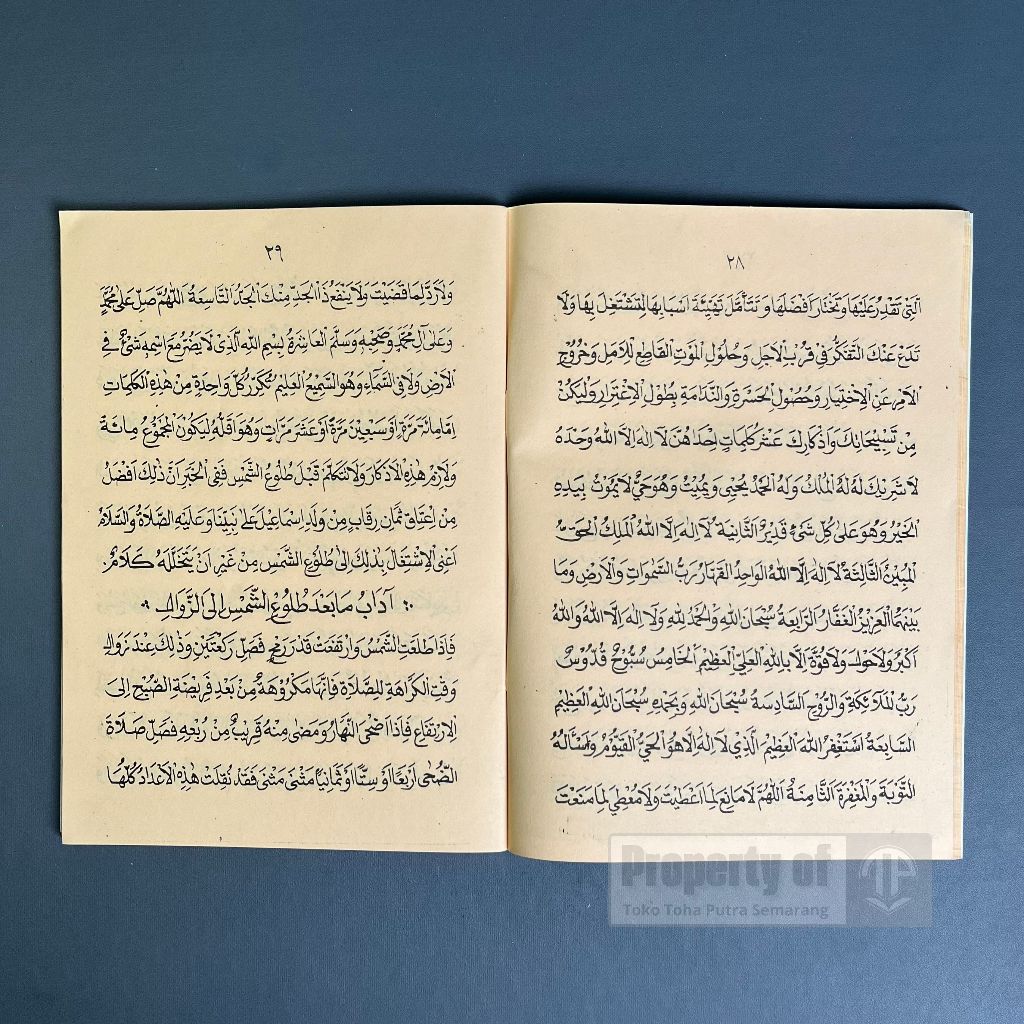 ٢٨
الَّتِي تَقْدِرُ عَلَيْهَا وَتَخْتَارَ اَفْضَلَهَا وَتَتَأَمَّلَ تَهْيِئَةَ اَسْبَابِهَا لِتَشْتَغِلَ بِهَا وَلَا
تَدَعْ عَنْكَ التَّفَكُّرَ فِي قُرْبِ الْاَجَلِ وَحُلُولِ الْمَوْتِ الْقَاطِعِ لِلْاَمَلِ وَخُرُوجِ
الْاَمْرِ عَنِ الْاِخْتِيَارِ وَحُصُولِ الْحَسْرَةِ وَالنَّدَامَةِ بِطُولِ الْاِغْتِرَارِ وَلْيَكُنْ
مِنْ تَسْبِيْحَاتِكَ وَاَذْكَارِكَ عَشْرُ كَلِمَاتٍ اِحْدَهُنَّ لَا اِلٰهَ اِلَّا اللهُ وَحْدَهُ
لَا شَرِيْكَ لَهُ لَهُ الْمُلْكُ وَلَهُ الْحَمْدُ يُحْيِي وَيُمِيْتُ وَهُوَ حَيٌّ لَا يَمُوْتُ بِيَدِهِ
الْخَيْرُ وَهُوَ عَلٰى كُلِّ شَيْءٍ قَدِيْرٌ الثَّانِيَةُ لَا اِلٰهَ اِلَّا اللهُ الْمَلِكُ الْحَقُّ
الْمُبِيْنُ الثَّالِثَةُ لَا اِلٰهَ اِلَّا اللهُ الْوَاحِدُ الْقَهَّارُ رَبُّ السَّمٰوَاتِ وَالْاَرْضِ وَمَا
بَيْنَهُمَا الْعَزِيْزُ الْغَفَّارُ الرَّابِعَةُ سُبْحَانَ اللهِ وَالْحَمْدُ لِلهِ وَلَا اِلٰهَ اِلَّا اللهُ وَاللهُ
اَكْبَرُ وَلَا حَوْلَ وَلَا قُوَّةَ اِلَّا بِاللهِ الْعَلِيِّ الْعَظِيْمِ الْخَامِسُ سُبُّوْحٌ قُدُّوْسٌ
رَبُّ الْمَلَائِكَةِ وَالرُّوْحِ السَّادِسَةُ سُبْحَانَ اللهِ وَبِحَمْدِهِ سُبْحَانَ اللهِ الْعَظِيْمِ
السَّابِعَةُ اَسْتَغْفِرُ اللهَ الْعَظِيْمَ الَّذِي لَا اِلٰهَ اِلَّا هُوَ الْحَيُّ الْقَيُّوْمُ وَاَسْأَلُهُ
التَّوْبَةَ وَالْمَغْفِرَةَ الثَّامِنَةُ اَللّٰهُمَّ لَا مَانِعَ لِمَا اَعْطَيْتَ وَلَا مُعْطِيَ لِمَا مَنَعْتَ
٢٩
وَلَا رَادَّ لِمَا قَضَيْتَ وَلَا يَنْفَعُ ذَا الْجَدِّ مِنْكَ الْجَدُّ التَّاسِعَةُ اَللّٰهُمَّ صَلِّ عَلٰى مُحَمَّدٍ
وَعَلٰى آلِ مُحَمَّدٍ وَصَحْبِهِ وَسَلِّمْ الْعَاشِرَةُ بِسْمِ اللهِ الَّذِي لَا يَضُرُّ مَعَ اسْمِهِ شَيْءٌ فِي
الْاَرْضِ وَلَا فِي السَّمَاءِ وَهُوَ السَّمِيْعُ الْعَلِيْمُ تُكَرِّرُ كُلَّ وَاحِدَةٍ مِنْ هٰذِهِ الْكَلِمَاتِ
اِمَّا مِائَةَ مَرَّةٍ اَوْ سَبْعِيْنَ مَرَّةً اَوْ عَشْرَ مَرَّاتٍ وَهُوَ اَقَلُّهُ لِيَكُوْنَ الْمَجْمُوْعُ مِائَةً
وَلَازِمْ هٰذِهِ الْاَذْكَارَ وَلَا تَتَكَلَّمْ قَبْلَ طُلُوْعِ الشَّمْسِ فَفِي الْخَبَرِ اَنَّ ذٰلِكَ اَفْضَلُ
مِنْ اِعْتَاقِ ثَمَانِ رِقَابٍ مِنْ وَلَدِ اِسْمَاعِيْلَ عَلٰى نَبِيِّنَا وَعَلَيْهِ الصَّلَاةُ وَالسَّلَامُ
اَعْنِي الْاِشْتِغَالَ بِذٰلِكَ اِلٰى طُلُوْعِ الشَّمْسِ مِنْ غَيْرِ اَنْ يَتَخَلَّلَهُ كَلَامٌ.
آدَابُ مَا بَعْدَ طُلُوْعِ الشَّمْسِ اِلَى الزَّوَالِ
فَاِذَا طَلَعَتِ الشَّمْسُ وَارْتَفَعَتْ قَدْرَ رُمْحٍ فَصَلِّ رَكْعَتَيْنِ وَذٰلِكَ عِنْدَ زَوَالِ
وَقْتِ الْكَرَاهَةِ لِلصَّلَاةِ فَاِنَّهَا مَكْرُوْهَةٌ مِنْ بَعْدِ فَرِيْضَةِ الصُّبْحِ اِلَى
الْاِرْتِفَاعِ فَاِذَا اَضْحَى النَّهَارُ وَمَضٰى مِنْهُ قَرِيْبٌ مِنْ رُبْعِهِ فَصَلِّ صَلَاةَ
الضُّحٰى اَرْبَعًا اَوْ سِتًّا اَوْ ثَمَانِيًا مَثْنٰى مَثْنٰى فَقَدْ نُقِلَتْ هٰذِهِ الْاَعْدَادُ كُلُّهَا
Property of
Toko Toha Putra Semarang